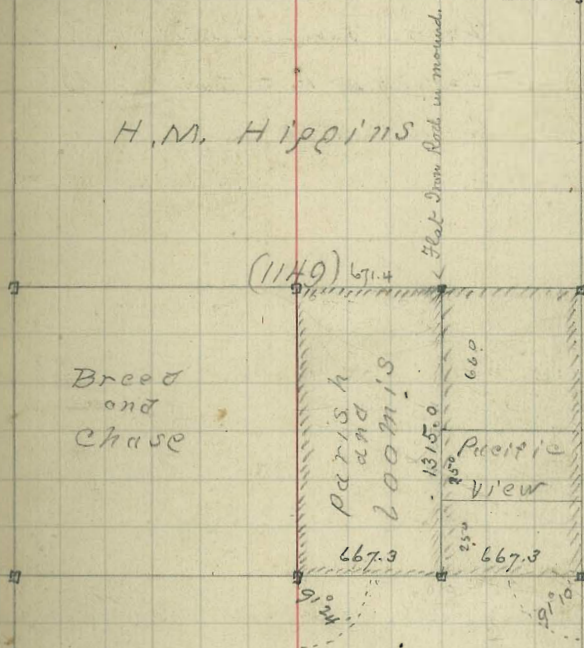 H. M. Higgins
Flat Iron Rod in mound.
(1149) 671.4
Breed
and
Chase
Parish
and
Loomis
1315.0
660
Pacific
View
250
250
667.3
667.3
91° 24'
91° 10'